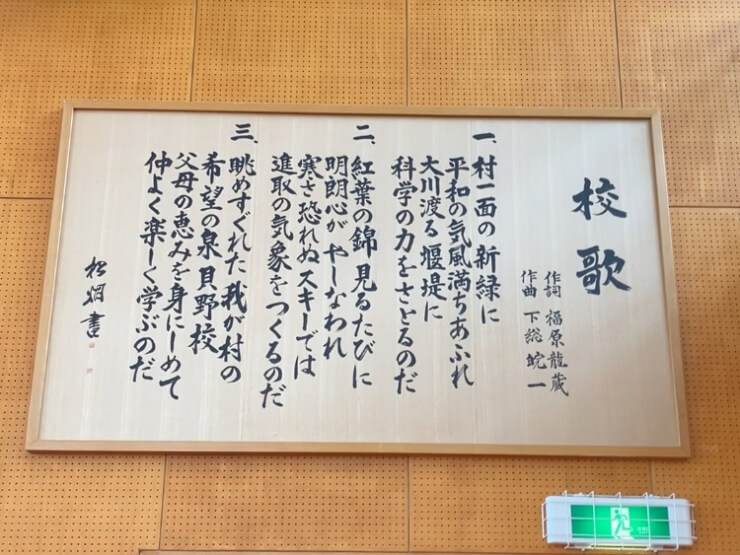 校歌
作詞 福原龍蔵
作曲 下総皖一
一、村一面の新緑に
平和の気風満ちあふれ
大川渡る堰堤に
科学の力をさとるのだ
二、紅葉の錦見るたびに
明朗心がやしなわれ
寒さ恐れぬスキーでは
進取の気象をつくるのだ
三、眺めすぐれた我が村の
希望の泉貝野校
父母の恵みを身にしめて
仲よく楽しく学ぶのだ